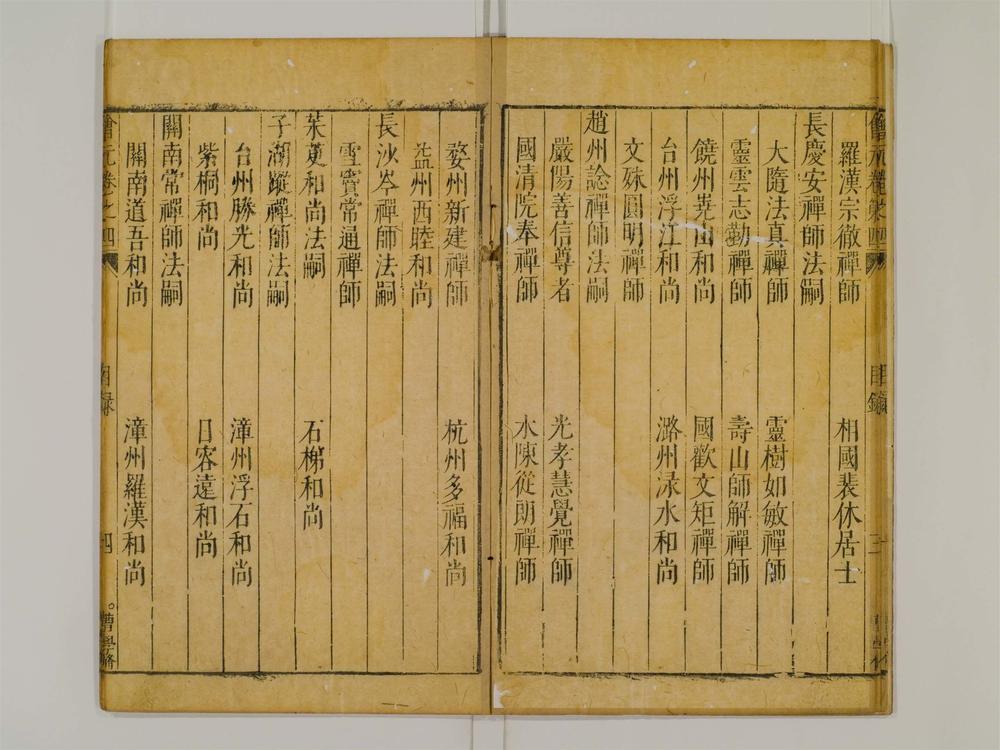 羅漢宗徹禪師 相國裴休居士
長慶安禪師法嗣
大隨法真禪師 靈樹如敏禪師
靈雲志勤禪師 壽山師解禪師
饒州嶤山和尚 國歡文矩禪師
台州浮江和尚 潞州淥水和尚
文殊圓明禪師
趙州諗禪師法嗣
嚴陽善信尊者 光孝慧覺禪師
國清院奉禪師 木陳從朗禪師
婺州新建禪師 杭州多福和尚
益州西睦和尚
長沙岑禪師法嗣
雪竇常通禪師
茱萸和尚法嗣 石梯和尚
子湖蹤禪師法嗣
台州勝光和尚 漳州浮石和尚
紫桐和尚 日容遠和尚
關南常禪師法嗣
關南道吾和尚 漳州羅漢和尚
會元卷之四 目錄 四